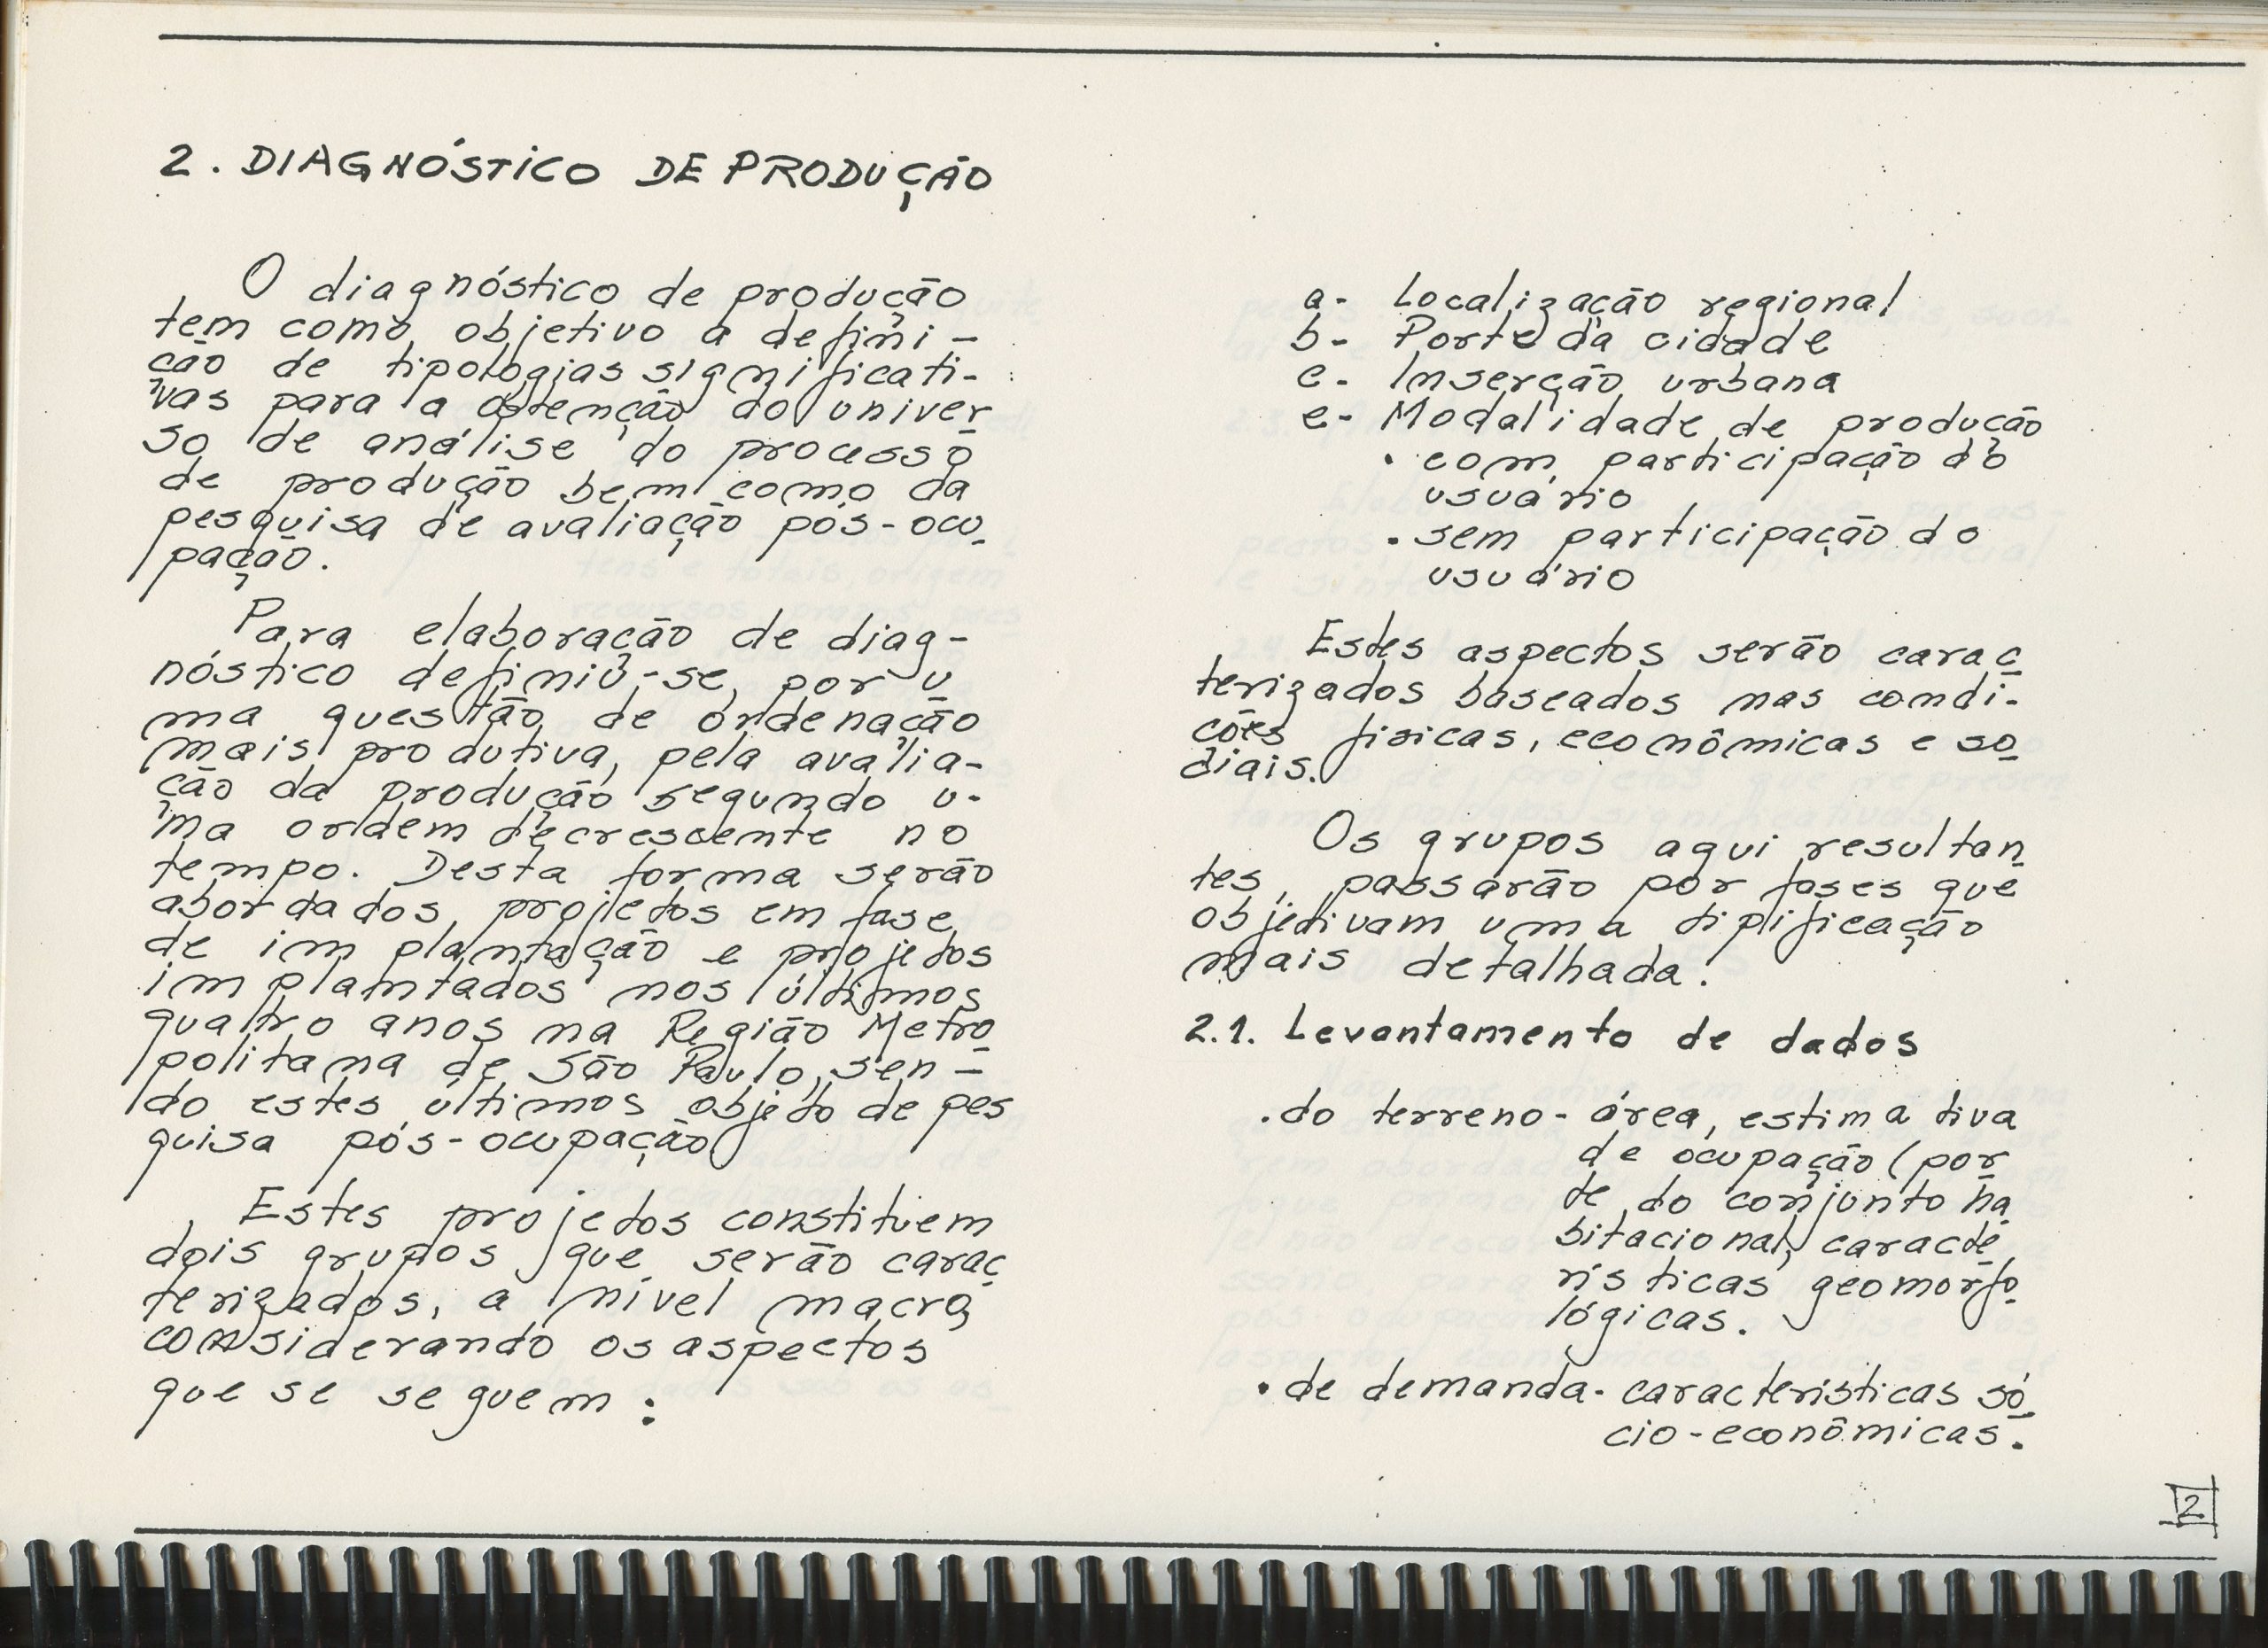 2. DIAGNÓSTICO DE PRODUÇÃO
O diagnóstico de produção
tem como objetivo a defini-
ção de tipologias significati-
vas para a obtenção do univer
so de análise do processo
de produção bem como da
pesquisa de avaliação pós-ocu
pação.
Para elaboração de diag-
nóstico definiu-se, por u
ma questão de ordenação
mais produtiva, pela avalia-
ção da produção segundo u-
ma ordem decrescente no
tempo. Desta forma serão
abordados projetos em fase
de implantação e projetos
implantados nos últimos
quatro anos na Região Metro
politana de São Paulo, sen-
do estes últimos objeto de pes
quisa pós-ocupação
Estes projetos constituem
dois grupos que serão carac
terizados, a nível macro,
considerando os aspectos
que se seguem:
a- Localização regional
b- Porte da cidade
c- Inserção urbana
e- Modalidade de produção
. com participação do
usuário
. sem participação do
usuário
Estes aspectos serão carac
terizados baseados nas condi-
ções físicas, econômicas e so
ciais.
Os grupos aqui resultan
tes, passarão por fases que
objetivam uma tipificação
mais detalhada.
2.1. Levantamento de dados
. do terreno - área, estimativa
de ocupação (por
te do conjunto ha
bitacional, caracte
rísticas geomorfo
lógicas.
. de demanda - características só
cio-econômicas.
2